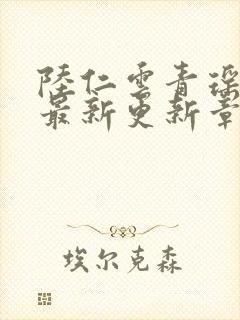 陸仁雲青瑶
最新更新章
埃尔克森